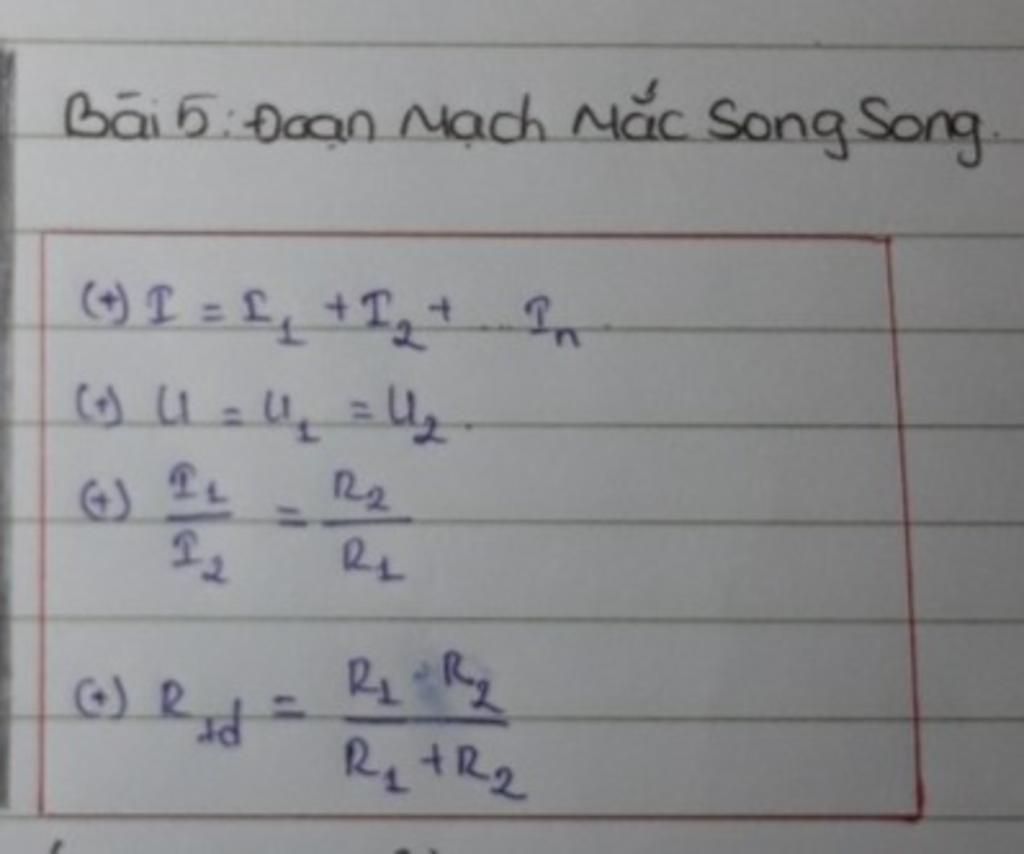 Bài 5: Đoạn Mạch Mắc Song Song.
(+) I = I₁ + I₂ + ... Iₙ
(+) U = U₁ = U₂.
(+) I₁/I₂ = R₂/R₁
(+) R_tđ = (R₁ · R₂)/(R₁ + R₂)